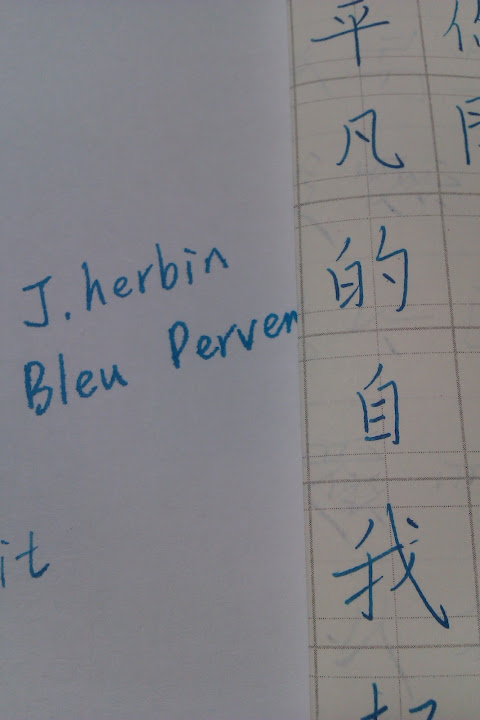 J. herbin
Bleu Perven
it
平
凡
的
自
我